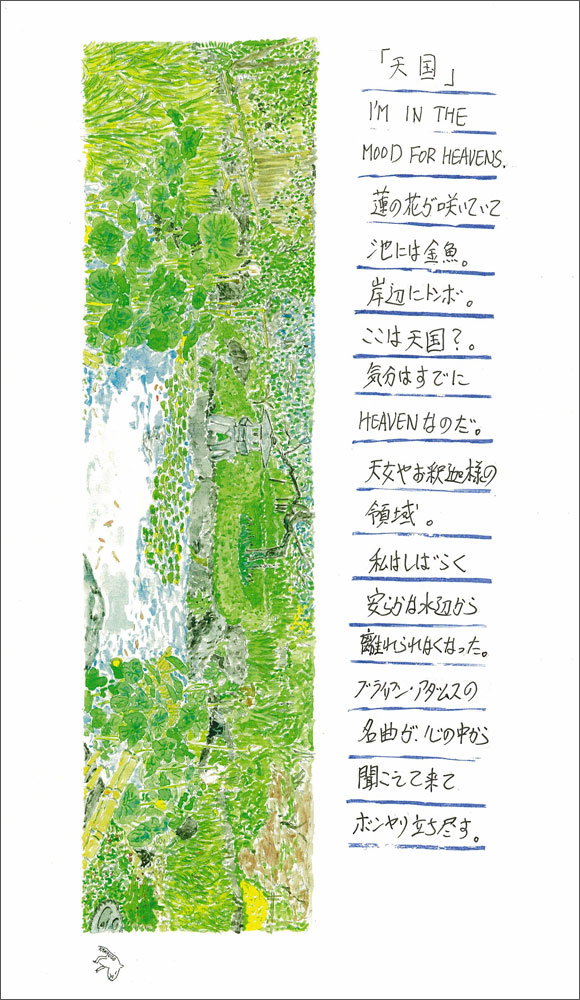 「天国」
I'M IN THE
MOOD FOR HEAVENS.
蓮の花が咲いていて
池には金魚。
岸辺にトンボ。
ここは天国？。
気分はすでに
HEAVENなのだ。
天女やお釈迦様の
領域。
私はしばらく
安らかな水辺から
離れられなくなった。
ブライアン・アダムスの
名曲が、心の中から
聞こえて来て
ボンヤリ立ち尽す。